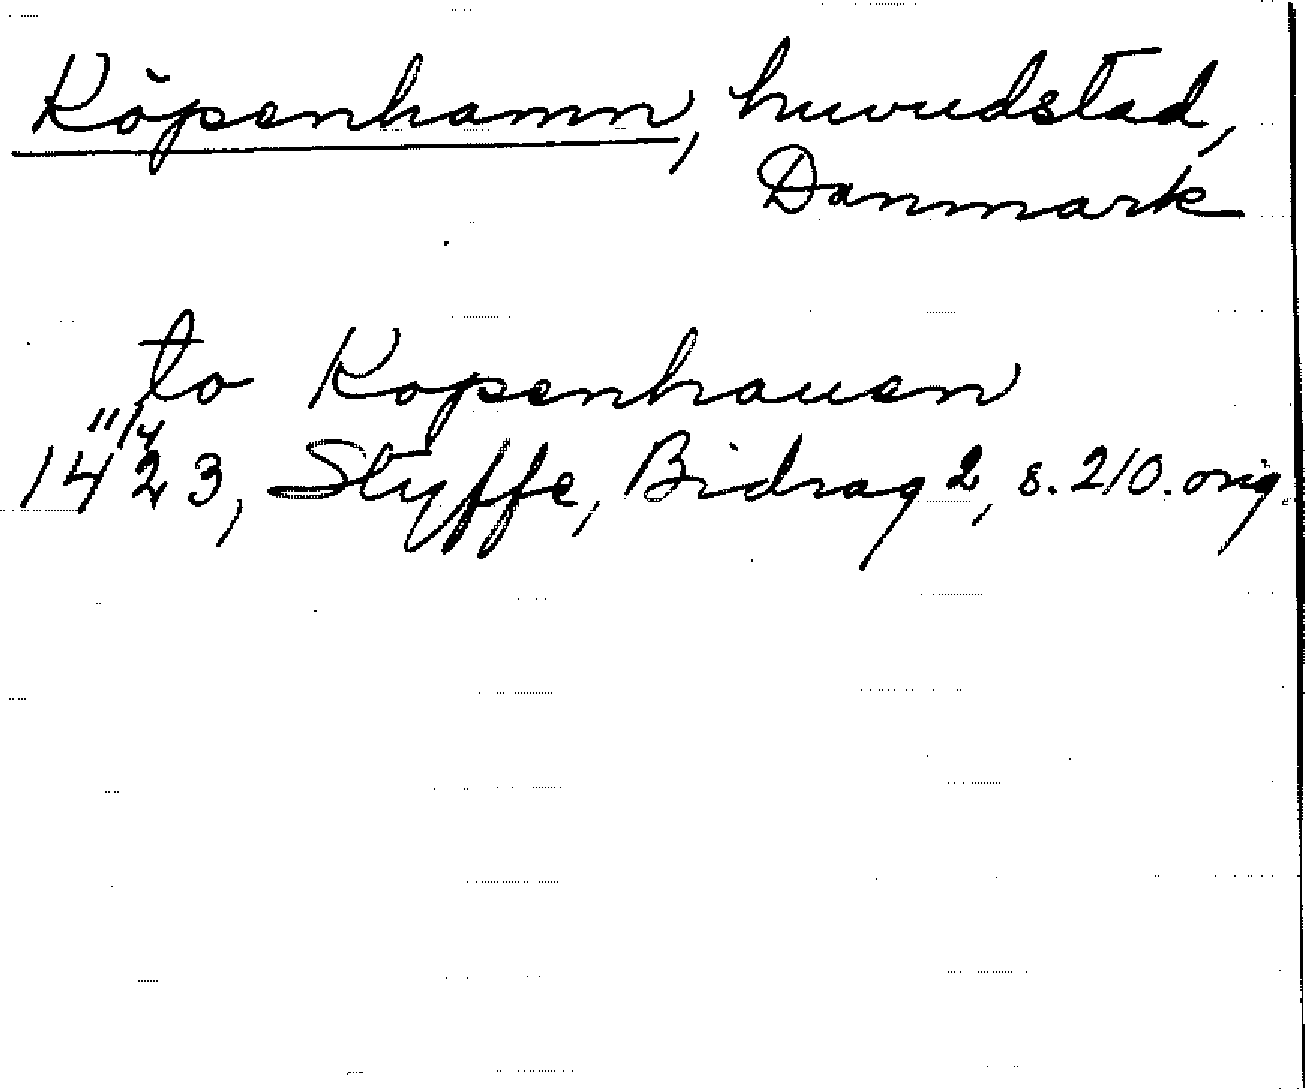 Köpenhamn, huvudstad,
Danmark
to Kopenhauen
14 11/4 23, Styffe, Bidrag 2, s. 210. orig